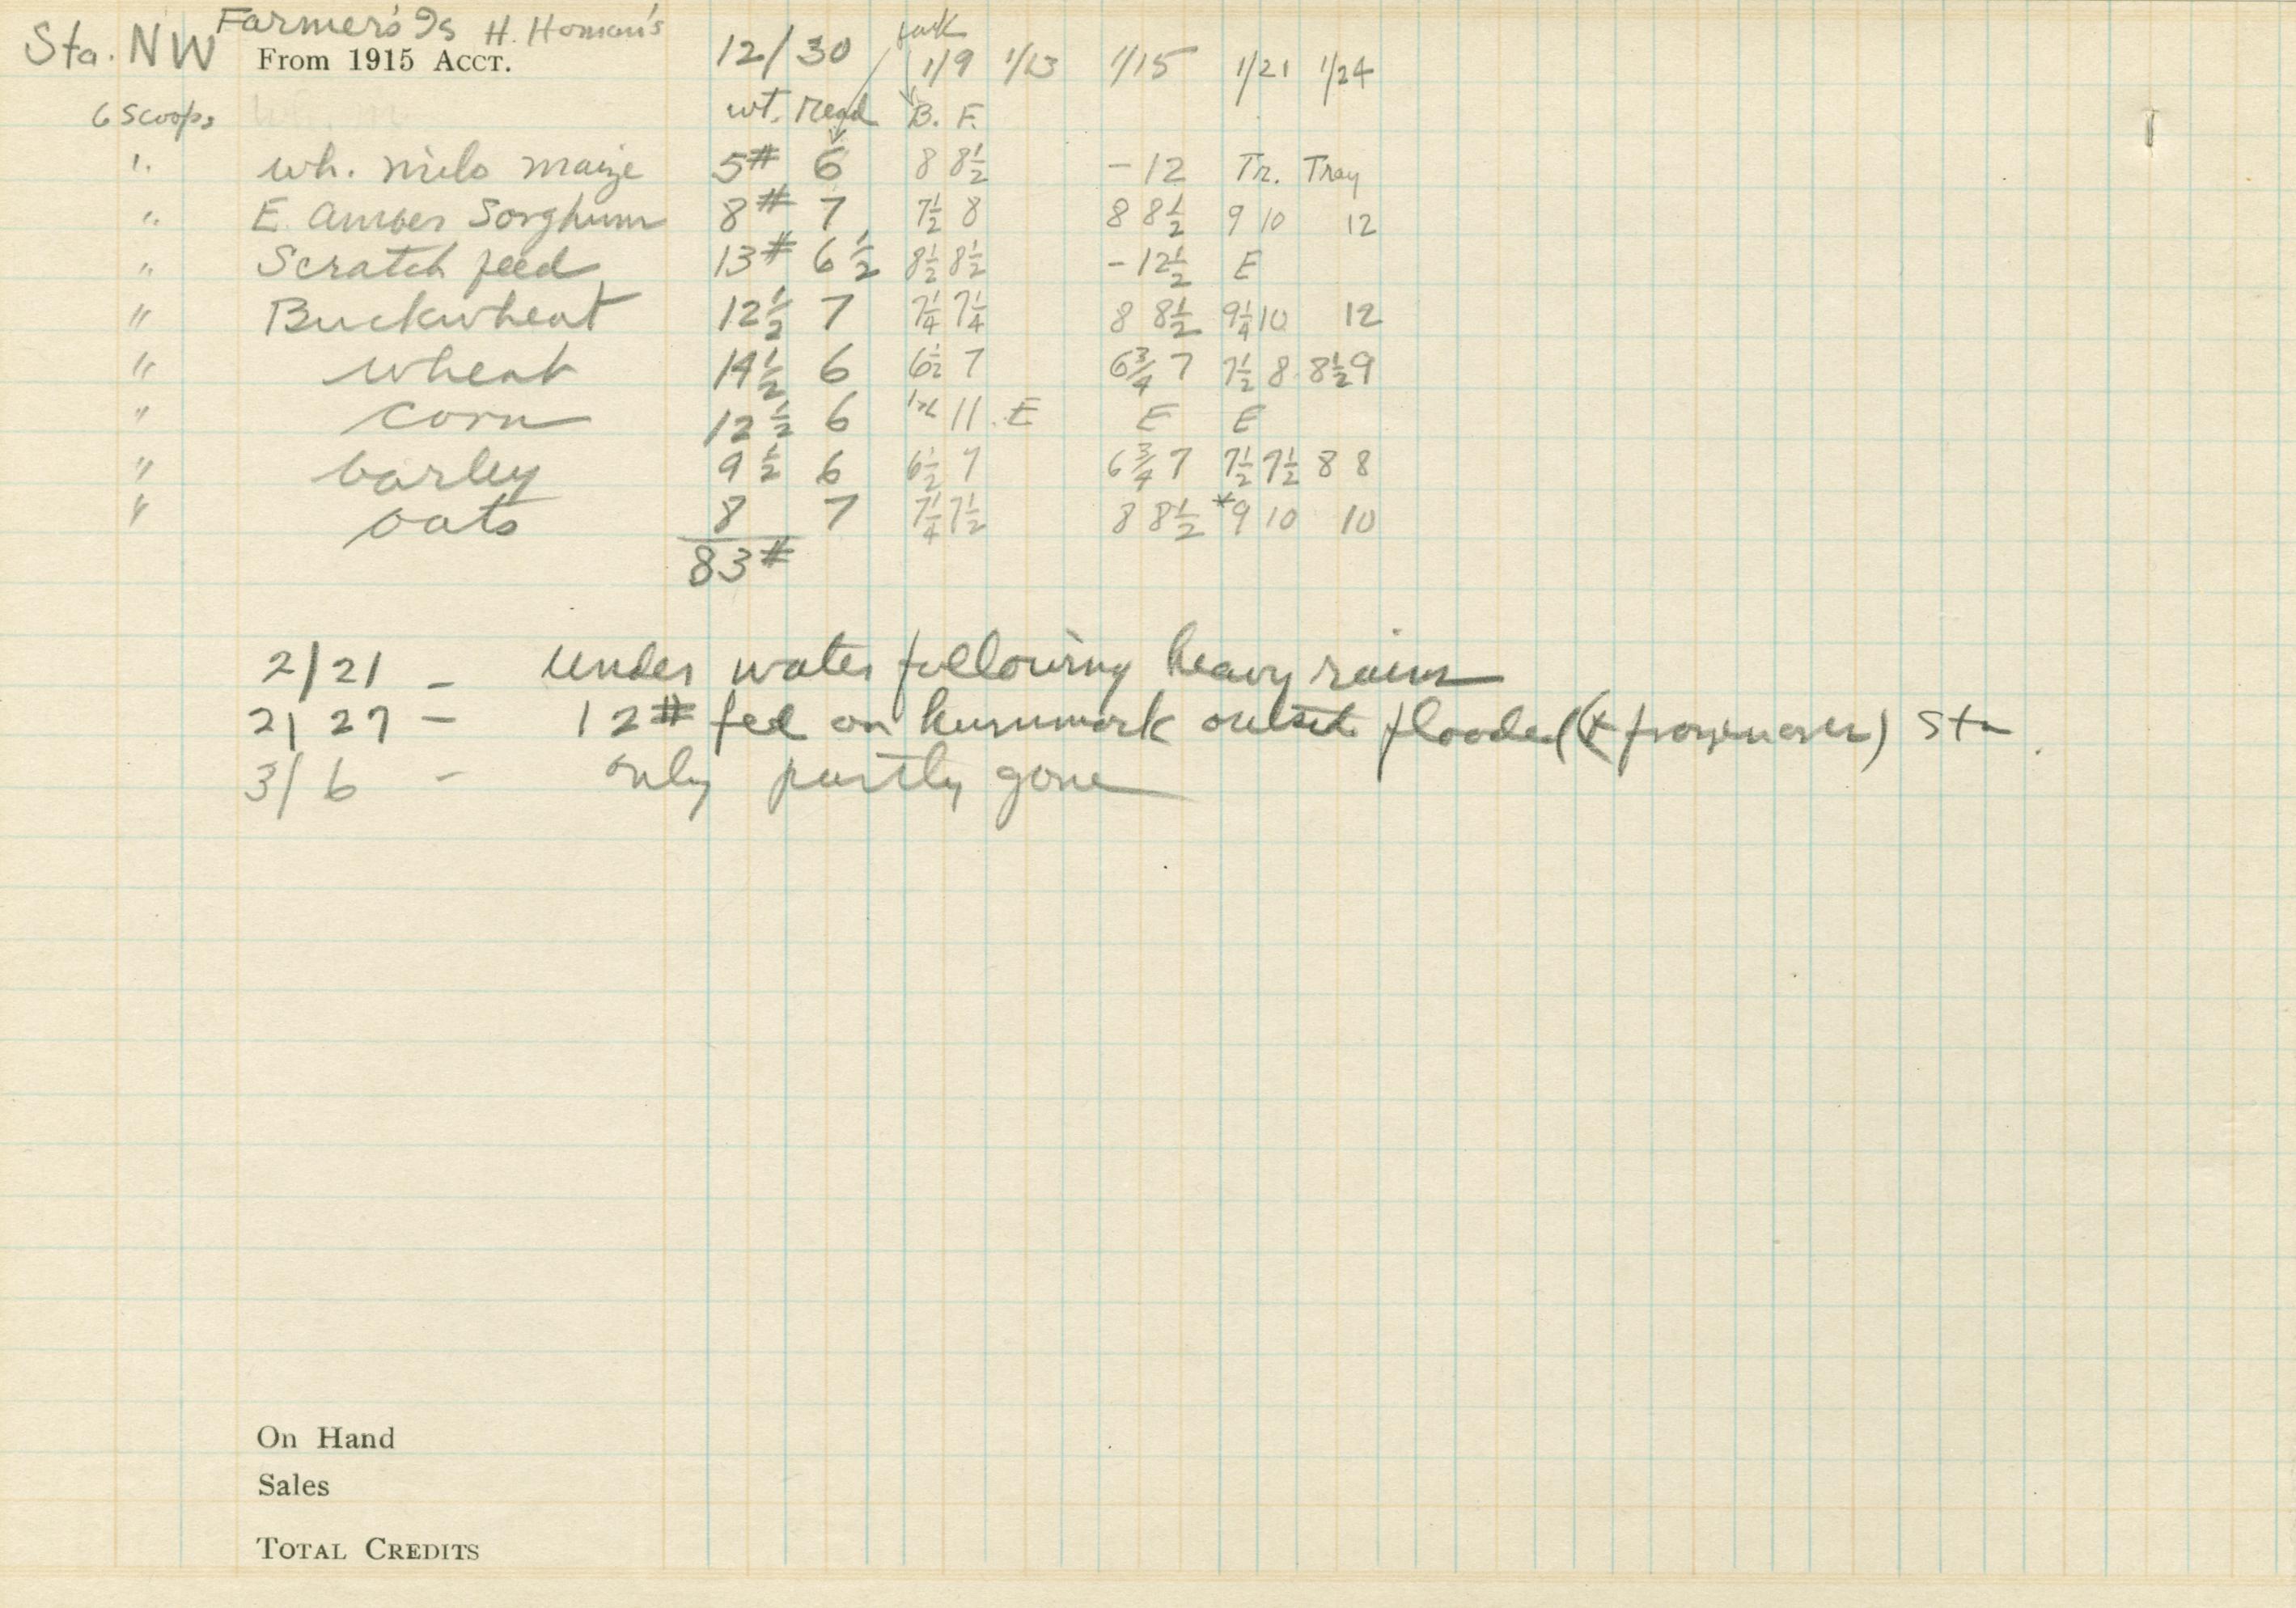 Farmer's Is H. Homan's
Sta. NW From 1915 Acct. 12/30 1/9 1/13 1/15 1/21 1/24
6 Scoops wt. Read B. F.
" wh. milo maize 5# 6 8 8½ - 12 Tr. Tray
" E. Amber Sorghum 8# 7 7½ 8 8 8½ 9 10 12
" Scratch feed 13# 6½ 8½ 8½ - 12½ E
" Buckwheat 12½ 7 7¼ 7¼ 8 8½ 9¼ 10 12
" wheat 14½ 6 6½ 7 6¾ 7 7½ 8 8½ 9
" corn 12½ 6 11 E E E
" barley 9½ 6 6½ 7 6¾ 7 7½ 7½ 8 8
" oats 8 7 7¼ 7½ 8 8½ *9 10 10
83#
2/21 - Under water following heavy rains
2/27 - 12# fed on hummock outside flooded (& frozen over) Sta.
3/6 - only partly gone
On Hand
Sales
Total Credits